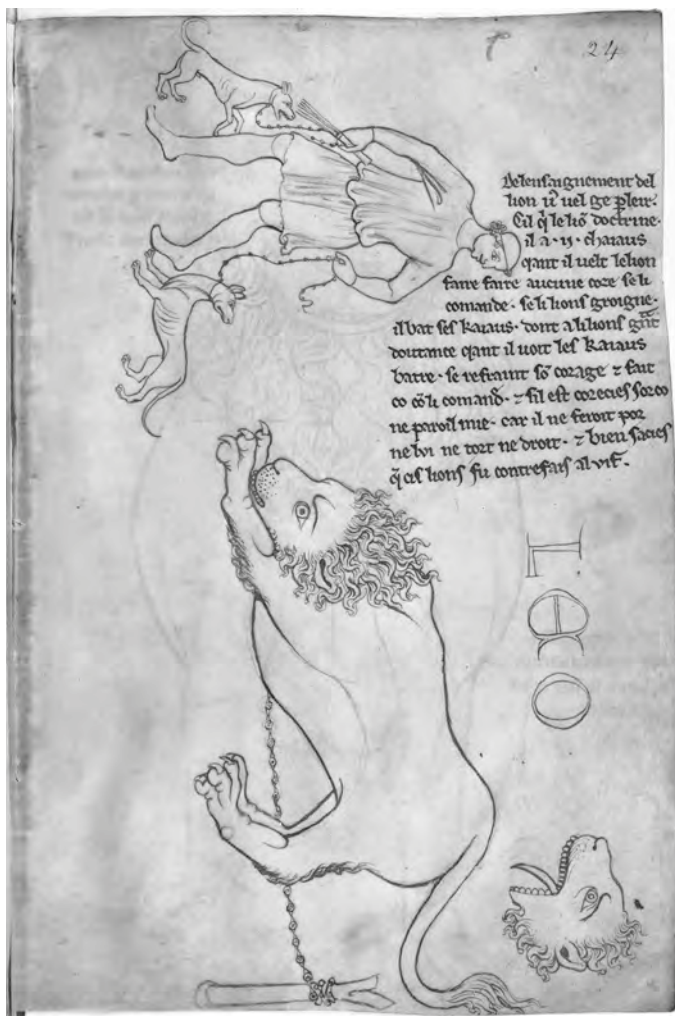 24
Del ensaignement del
lion vᵒ vel ge pleir.
Cil q̄ le liō doctrine.
il a .ii. chaiaus
qant il velt le lion
faire faire aucune coze se li
comande. se li lions groigne.
il bat ses kaiaus. dont a li lions gñt
doutance qant il voit les kaiaus
batre. se refraint sō corage ⁊ fait
co cō li comand. ⁊ sil est corecies sor co
ne paroil mie. car il ne feroit por
nelvi ne tort ne droit. ⁊ bien sacies
q̄ cis lions fu contrefais al vif.
LEO